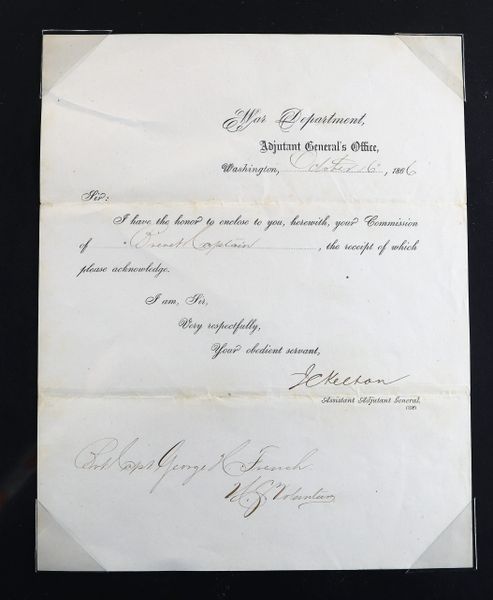 War Department,
Adjutant General's Office,
Washington, October 16, 1866
Sir:
I have the honor to enclose to you, herewith, your Commission
of Brevet Captain, the receipt of which
please acknowledge.
I am, Sir,
Very respectfully,
Your obedient servant,
J C Kelton
Assistant Adjutant General.
Bvt Capt George French
U.S. Volunteers